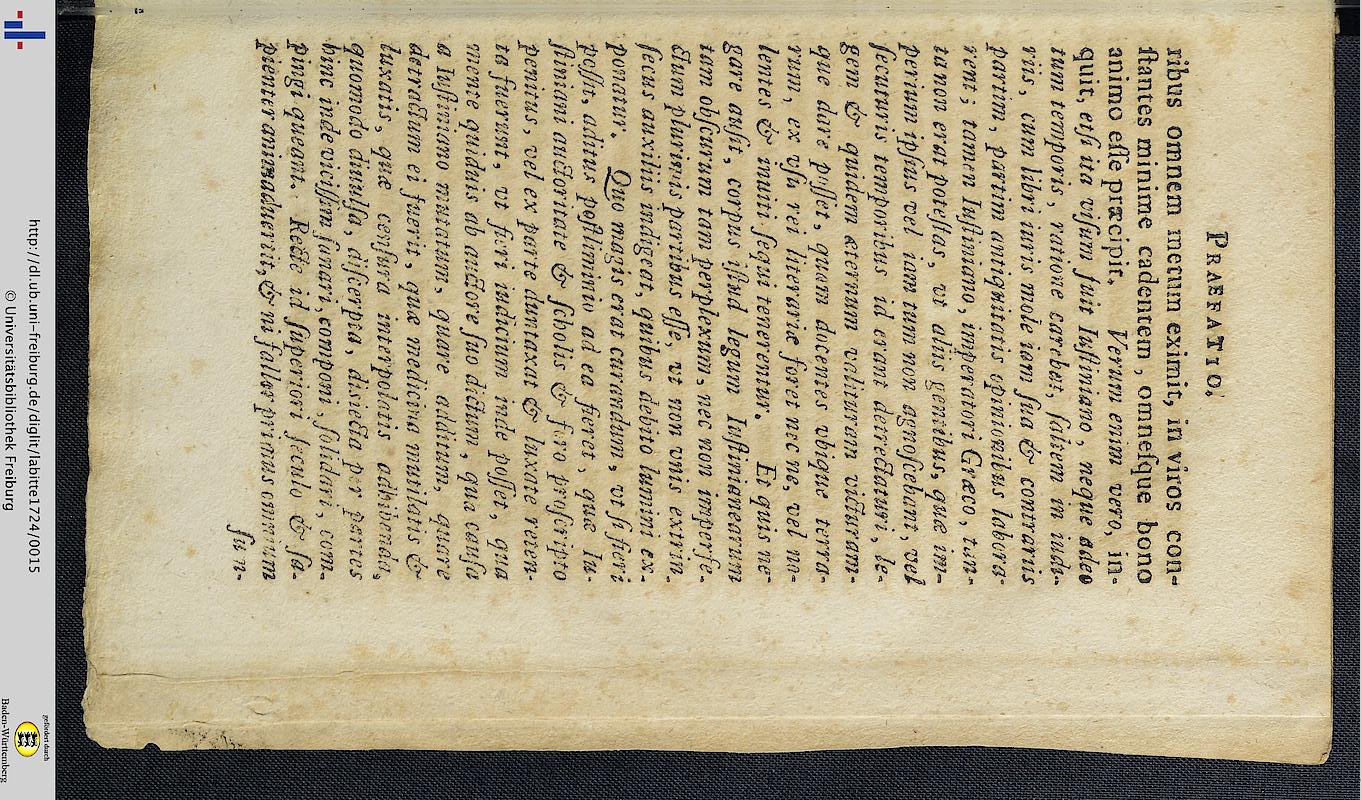 PRÆFATIO.
ribus omnem metum eximit, in viros con-
ſtantes minime cadentem, omneſque bono
animo eſſe præcipit. Verum enim vero, in-
quit, etſi ita viſum fuit Iuſtiniano, neque adeo
tum temporis, ratione carebat, ſaltem in iudi-
riis, cum libri iuris mole iam ſua & contrariis
partim, partim antiquitatis opinionibus labora-
rent; tamen Iuſtiniano, imperatori Græco, tan-
ta non erat poteſtas, vt aliis gentibus, quæ im-
perium ipſius vel iam tum non agnoſcebant, vel
ſecuturis temporibus id erant detrectaturi, le-
gem & quidem æternum valituram victuram-
que dare poſſet, quam docentes vbique terra-
rum, ex vſu rei literariæ foret nec ne, vel no-
lentes & inuiti ſequi tenerentur. Et quis ne-
gare auſit, corpus iſtud legum Iuſtinianearum
tam obſcurum tam perplexum, nec non imperfe-
ctum plurimis partibus eſſe, vt non vnis extrin-
ſecus auxiliis indigeat, quibus debito lumini ex-
ponatur. Quo magis erat curandum, vt ſi fieri
poſſit, aditus poſtliminio ad ea fieret, quæ Iu-
ſtiniani auctoritate & ſcholis & foro proſcripto
penitus, vel ex parte duntaxat & luxate reten-
ta fuerunt, vt fieri iudicium inde poſſet, qua
mente quiduis ab auctore ſuo dictum, qua cauſa
a Iuſtiniano mutatum, quare additum, quare
detractum ei fuerit, quæ medicina mutilatis &
luxatis, quæ cenſura interpolatis adhibenda,
quomodo diuulſa, diſcerpta, disiecta per partes
hinc inde viciſſim ſanari, componi, ſolidari, com-
pingi queant. Recte id ſuperiori ſeculo & ſa-
pienter animaduertit, & ni fallor primus omnium
ſu n-
http://dl.ub.uni-freiburg.de/diglit/labitte1724/0015
© Universitätsbibliothek Freiburg
gefördert durch
Baden-Württemberg